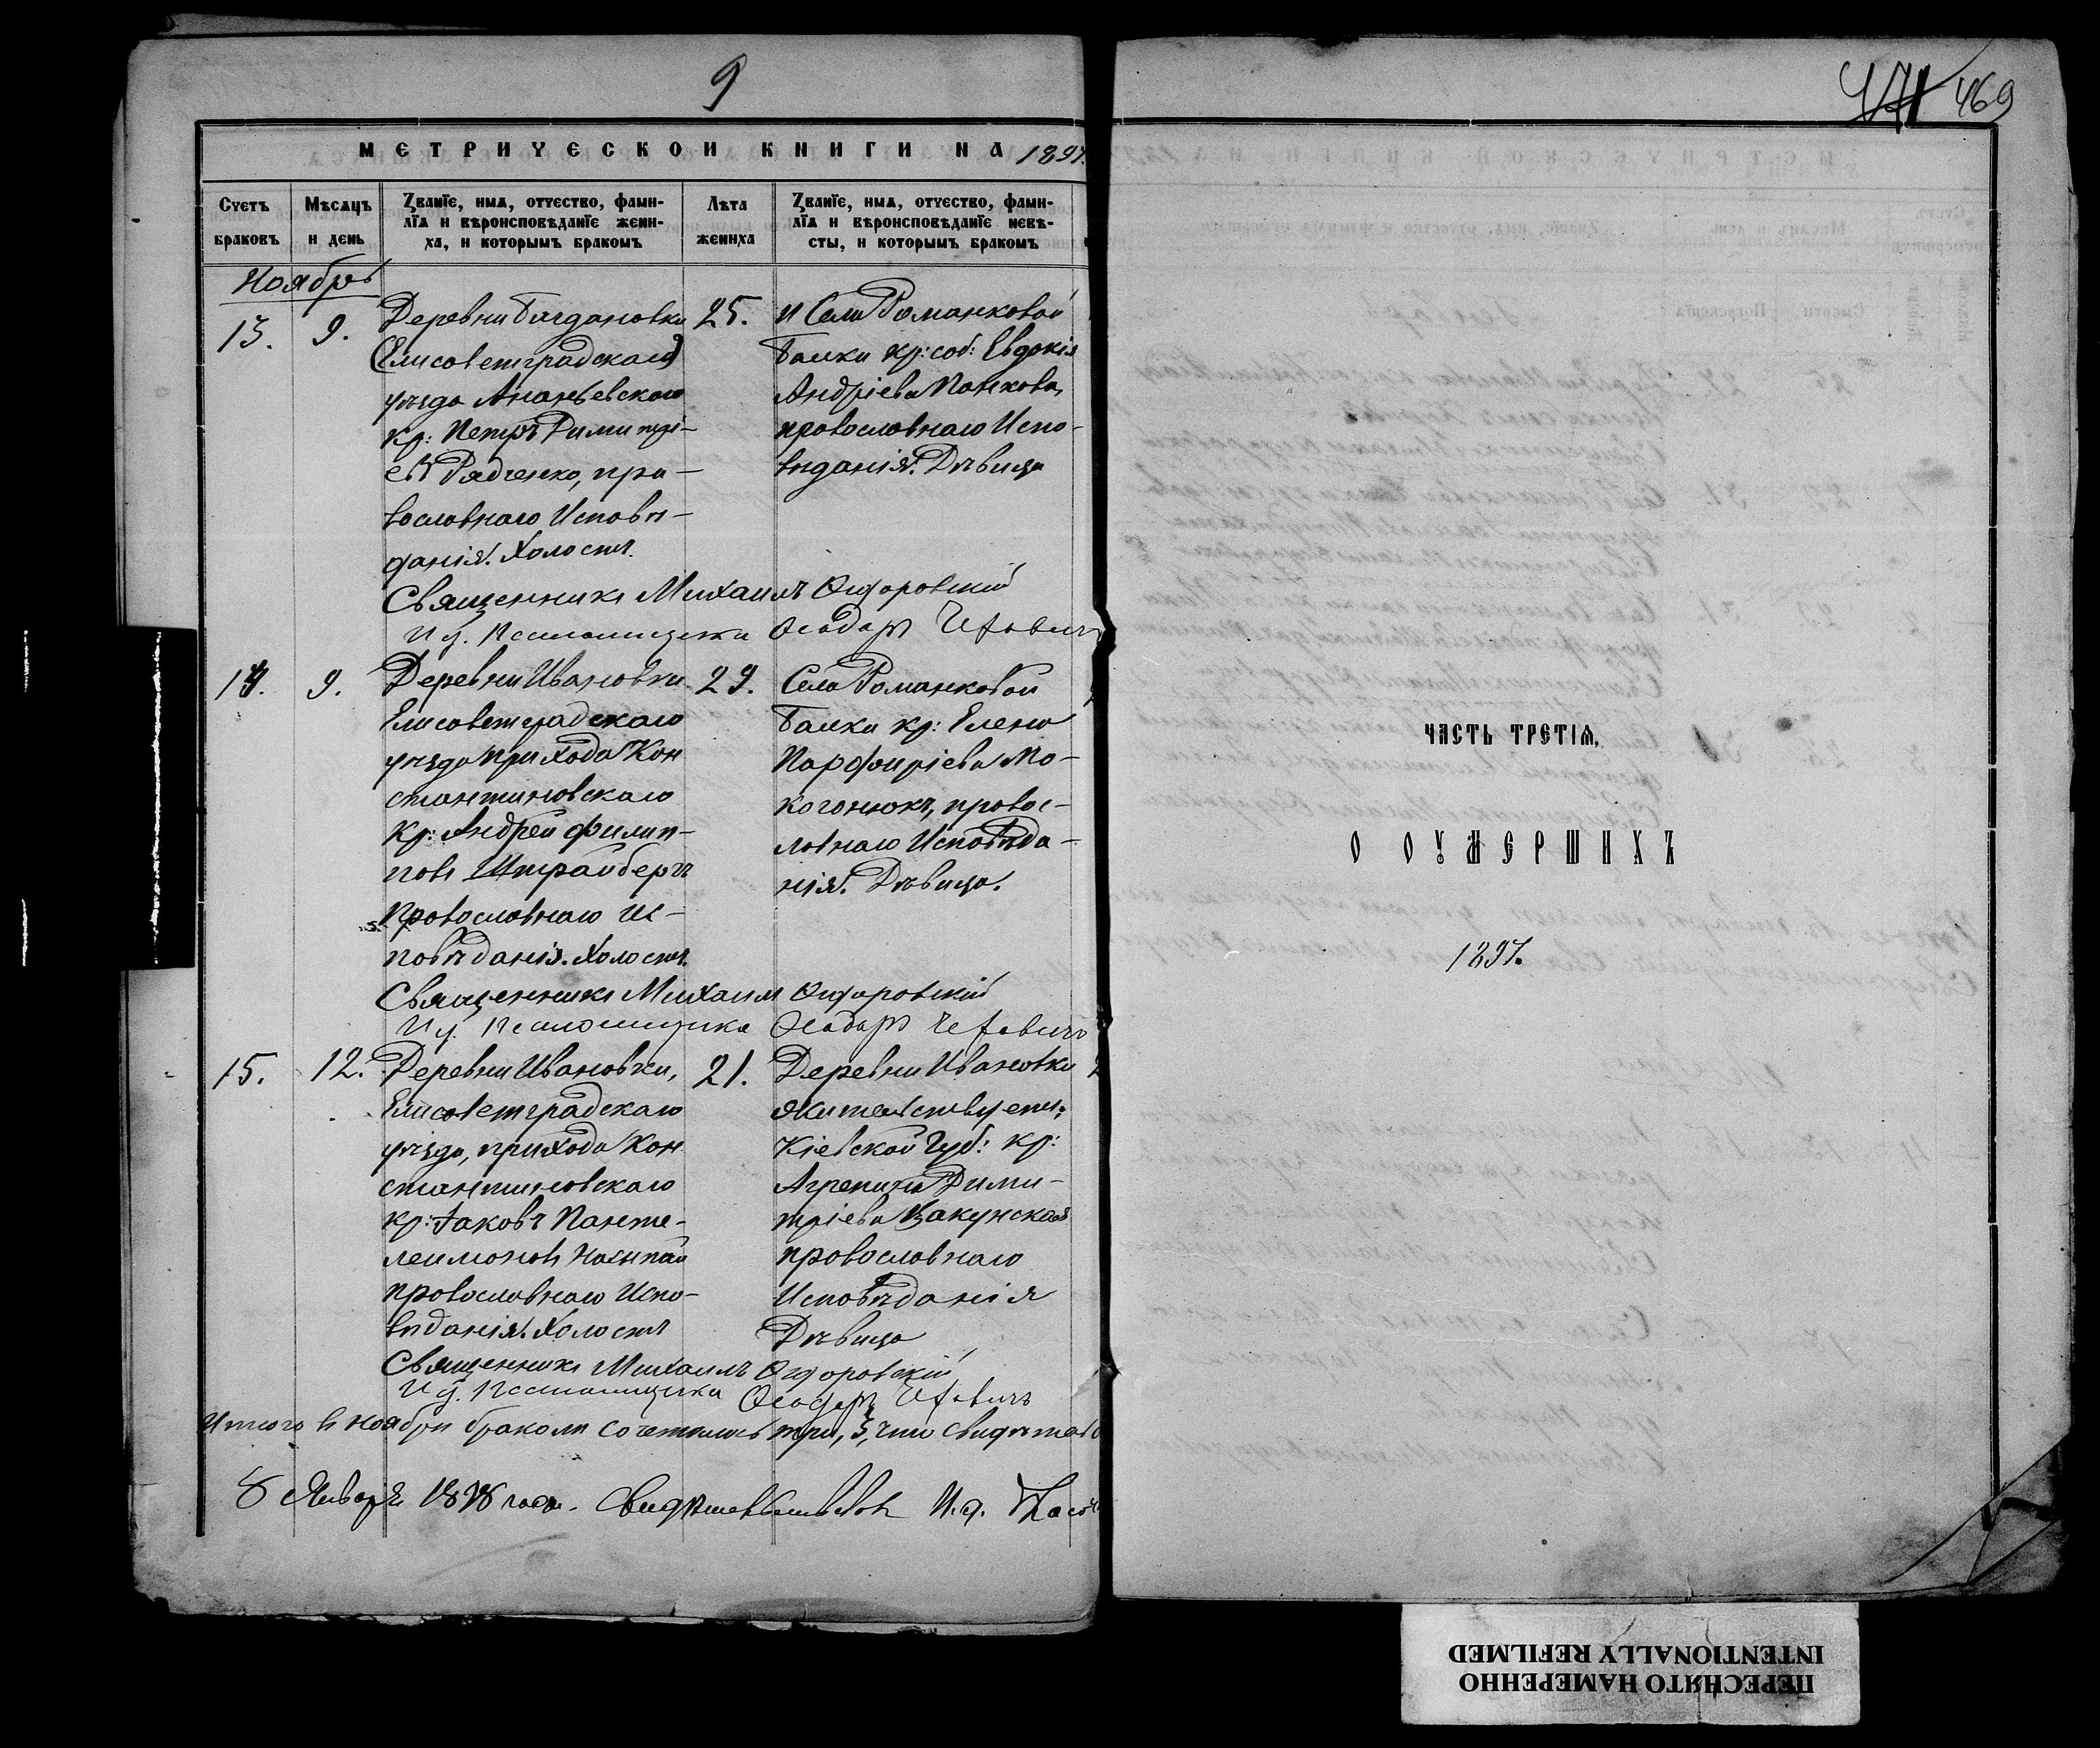 9
МЕТРИЧЕСКОЙ КНИГИ НА 1897.
Счетъ браковъ
Мѣсяцъ и день
Званіе, имя, отчество, фамилія и вѣроисповѣданіе жениха, и которымъ бракомъ
Лѣта жениха
Званіе, имя, отчество, фамилія и вѣроисповѣданіе невѣсты, и которымъ бракомъ
Ноябрь
13. 9.
Деревни Богдановки
Елисаветградскаго
уѣзда Ананьевскаго
кр: Петръ Димитрі-
евъ Радченко, пра-
вославнаго Исповѣ-
данія. Холостъ.
25.
и Села Романковой
Балки кр: соб: Евдокія
Андріева Панкова,
православнаго Испо-
вѣданія. Дѣвица
Священникъ Михаилъ Ѳедоровскій
И д. Псаломщика
14. 9.
Деревни Ивановки
Елисаветградскаго
уѣзда прихода Кон
стантиновскаго
кр: Андрей Филип-
повъ Штрайберъ
Православнаго Ис-
повѣданія. Холостъ.
29.
Села Романковой
Балки кр: Елена
Парфиріева Мо-
когонюкъ, правос-
лавнаго Исповѣда-
нія. Дѣвица.
Священникъ Михаилъ Ѳедоровскій
И д. Псаломщика
15. 12.
Деревни Ивановки,
Елисаветградскаго
уѣзда, прихода Кон
стантиновскаго
кр: Іаковъ Панте-
леимоновъ
православнаго Испо-
вѣданія. Холостъ
21.
Деревни Ивановки
жительствуетъ
Кіевской Губ: кр:
Агрепина Дими-
тріева
православнаго
Исповѣданія
Дѣвица
Священникъ Михаилъ Ѳедоровскій
И д. Псаломщика
Итого в ноябрѣ бракомъ сочеталось три, 3, что свидѣтель
8 Января 1898 года. Свидѣтельствовалъ И. д.
471 469
ЧАСТЬ ТРЕТІЯ,
О ОУМЕРШИХЪ
1897.
ПЕРЕСНЯТО НАМЕРЕННО
INTENTIONALLY REFILMED